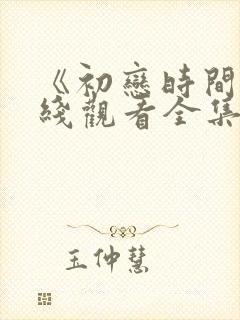 《初戀時間
綫觀看全集
王仲慧